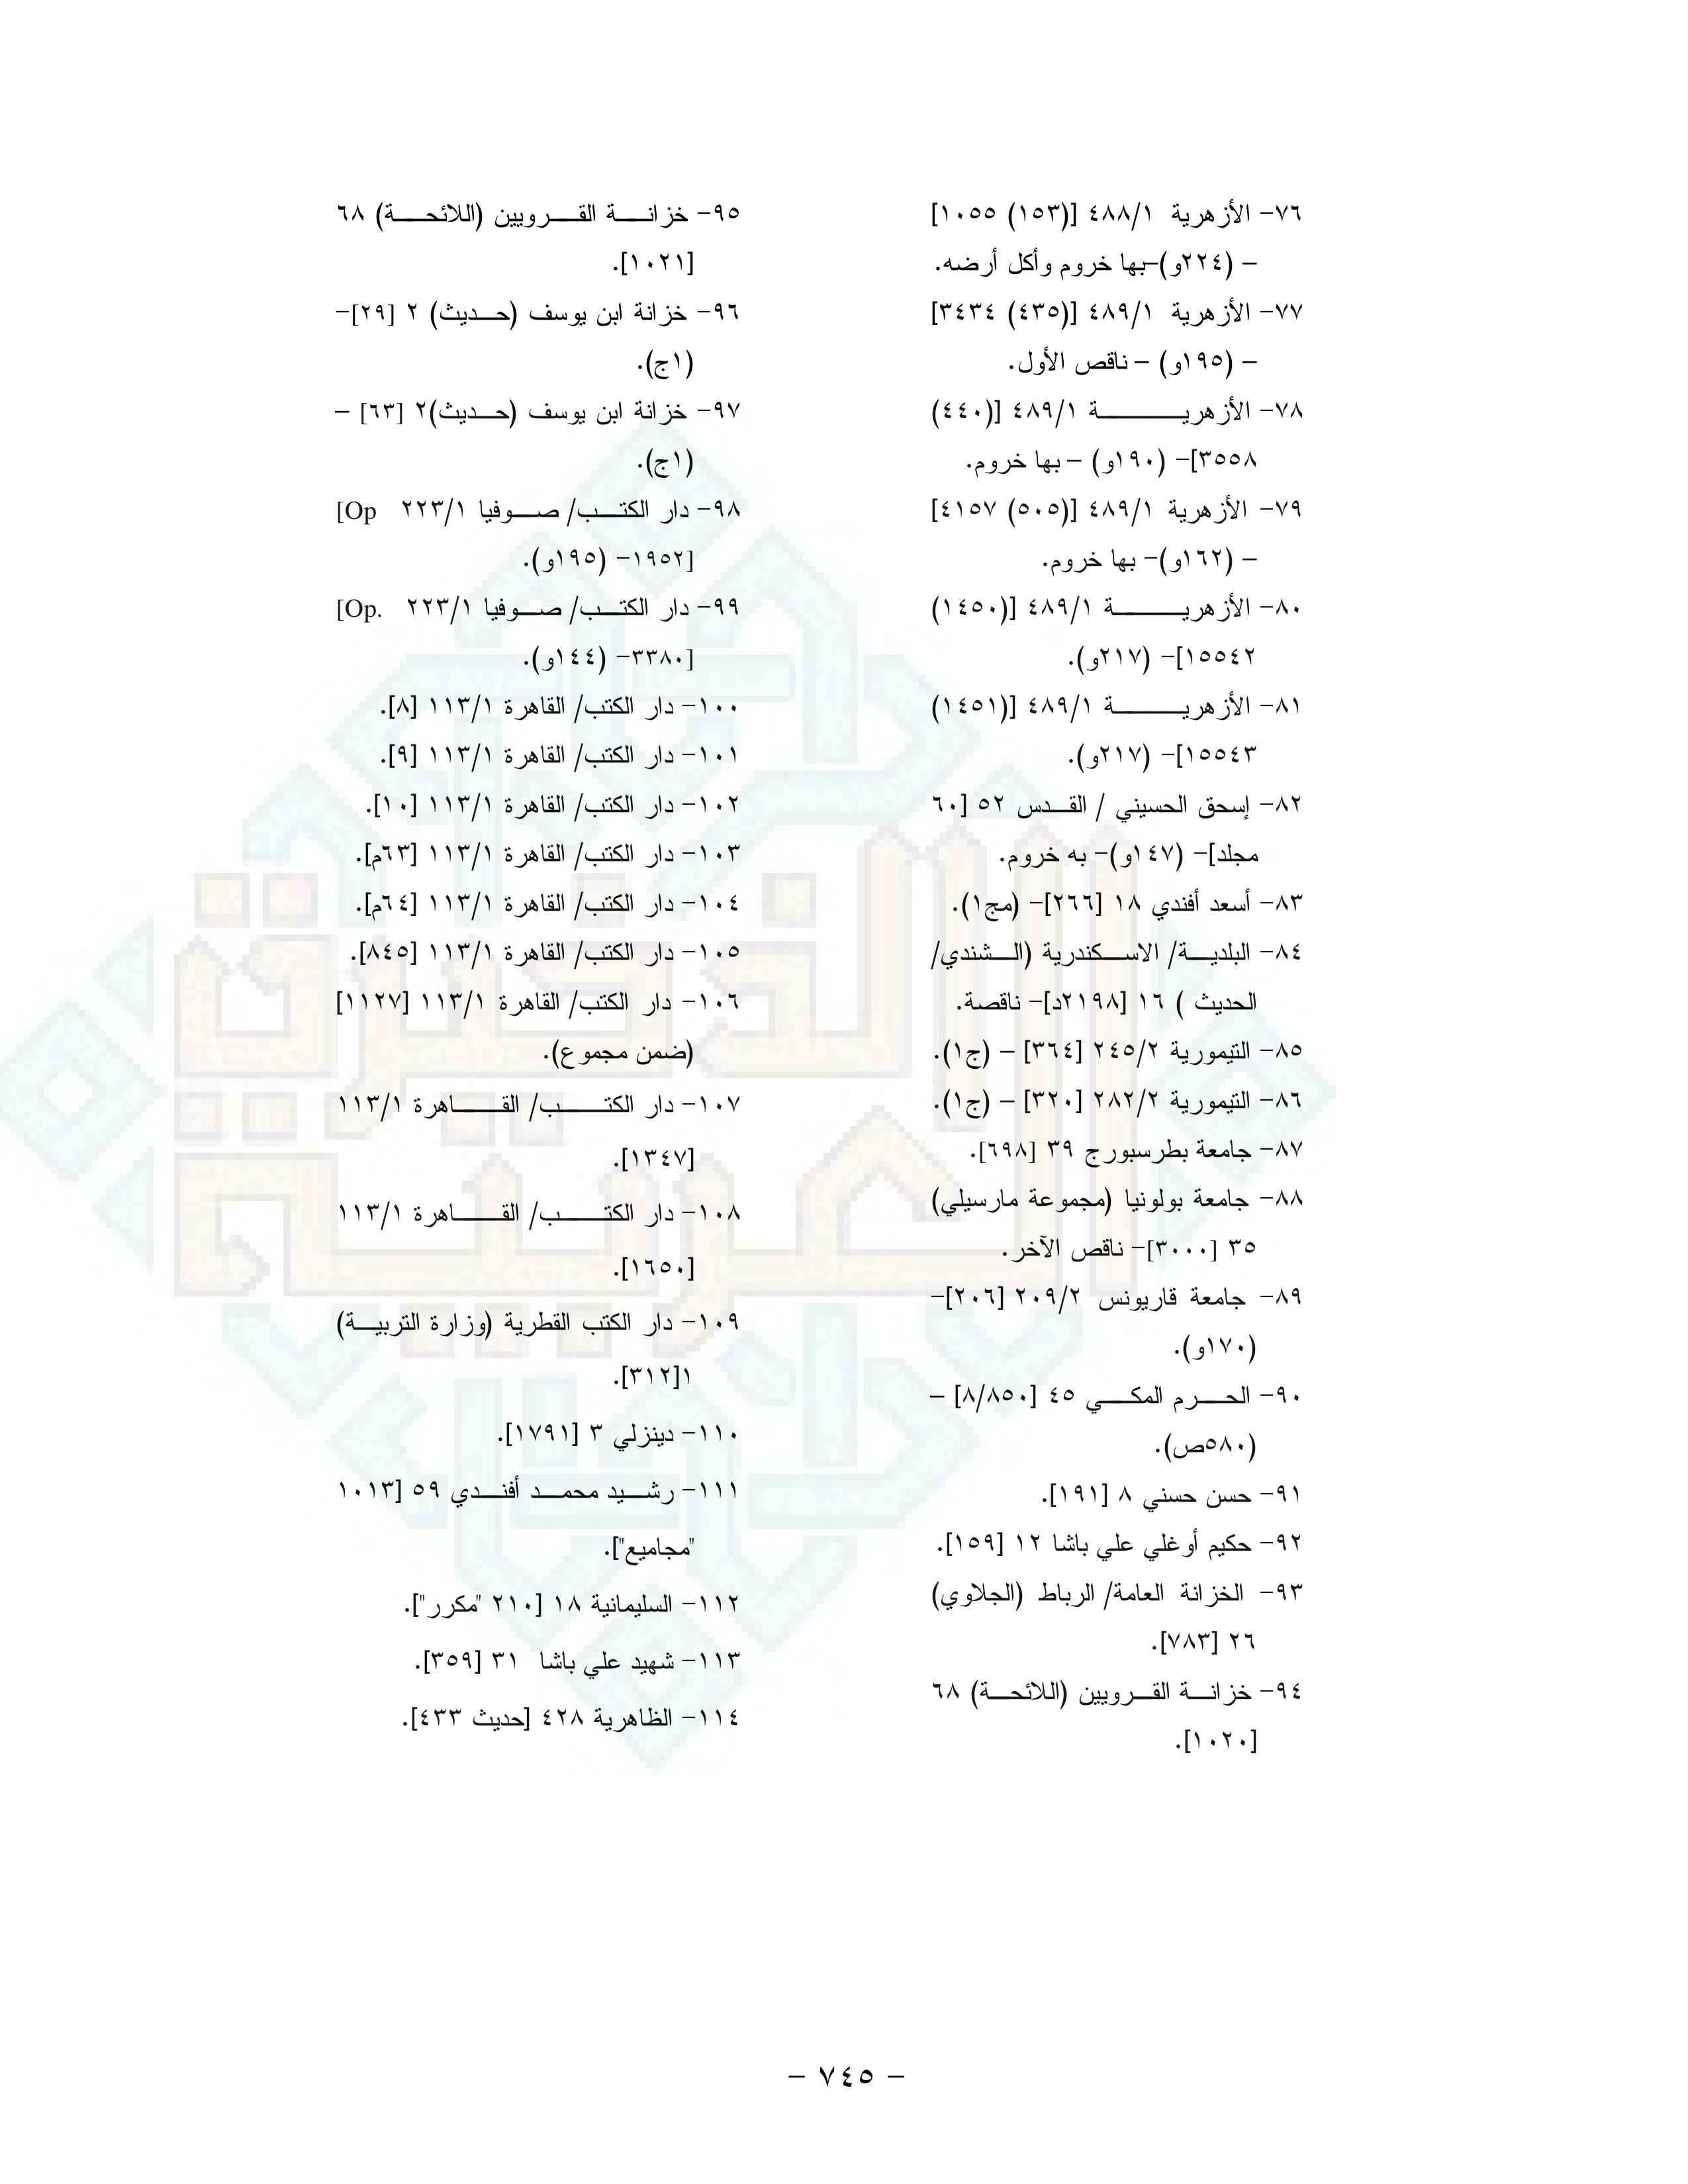 ٧٦- الأزهرية ٤٨٨/١ [(١٥٣) ١٠٥٥]
– (٢٢٤و)–بها خروم وأكل أرضه.
٧٧- الأزهرية ٤٨٩/١ [(٤٣٥) ٣٤٣٤]
– (١٩٥و) – ناقص الأول.
٧٨- الأزهرية ٤٨٩/١ [(٤٤٠)
٣٥٥٨]- (١٩٠و) – بها خروم.
٧٩- الأزهرية ٤٨٩/١ [(٥٠٥) ٤١٥٧]
– (١٦٢و)- بها خروم.
٨٠- الأزهرية ٤٨٩/١ [(١٤٥٠)
١٥٥٤٢]- (٢١٧و).
٨١- الأزهرية ٤٨٩/١ [(١٤٥١)
١٥٥٤٣]- (٢١٧و).
٨٢- إسحق الحسيني / القدس ٥٢ [٦٠
مجلد]- (١٤٧و)- به خروم.
٨٣- أسعد أفندي ١٨ [٢٦٦]- (مج١).
٨٤- البلدية/ الاسكندرية (الشندي/
الحديث ) ١٦ [٢١٩٨د]- ناقصة.
٨٥- التيمورية ٢٤٥/٢ [٣٦٤] – (ج١).
٨٦- التيمورية ٢٨٢/٢ [٣٢٠] – (ج١).
٨٧- جامعة بطرسبورج ٣٩ [٦٩٨].
٨٨- جامعة بولونيا (مجموعة مارسيلي)
٣٥ [٣٠٠٠]- ناقص الآخر.
٨٩- جامعة قاريونس ٢٠٩/٢ [٢٠٦]-
(١٧٠و).
٩٠- الحرم المكي ٤٥ [٨/٨٥٠] –
(٥٨٠ص).
٩١- حسن حسني ٨ [١٩١].
٩٢- حكيم أوغلي علي باشا ١٢ [١٥٩].
٩٣- الخزانة العامة/ الرباط (الجلاوي)
٢٦ [٧٨٣].
٩٤- خزانة القرويين (اللائحة) ٦٨
[١٠٢٠].
٩٥- خزانة القرويين (اللائحة) ٦٨
[١٠٢١].
٩٦- خزانة ابن يوسف (حديث) ٢ [٢٩]-
(١ج).
٩٧- خزانة ابن يوسف (حديث)٢ [٦٣] –
(١ج).
٩٨- دار الكتب/ صوفيا ٢٢٣/١ [Op
١٩٥٢]- (١٩٥و).
٩٩- دار الكتب/ صوفيا ٢٢٣/١ [Op.
٣٣٨٠]- (١٤٤و).
١٠٠- دار الكتب/ القاهرة ١١٣/١ [٨].
١٠١- دار الكتب/ القاهرة ١١٣/١ [٩].
١٠٢- دار الكتب/ القاهرة ١١٣/١ [١٠].
١٠٣- دار الكتب/ القاهرة ١١٣/١ [٦٣م].
١٠٤- دار الكتب/ القاهرة ١١٣/١ [٦٤م].
١٠٥- دار الكتب/ القاهرة ١١٣/١ [٨٤٥].
١٠٦- دار الكتب/ القاهرة ١١٣/١ [١١٢٧]
(ضمن مجموع).
١٠٧- دار الكتب/ القاهرة ١١٣/١
[١٣٤٧].
١٠٨- دار الكتب/ القاهرة ١١٣/١
[١٦٥٠].
١٠٩- دار الكتب القطرية (وزارة التربية)
١[٣١٢].
١١٠- دينزلي ٣ [١٧٩١].
١١١- رشيد محمد أفندي ٥٩ [١٠١٣
"مجاميع"].
١١٢- السليمانية ١٨ [٢١٠ "مكرر"].
١١٣- شهيد علي باشا ٣١ [٣٥٩].
١١٤- الظاهرية ٤٢٨ [حديث ٤٣٣].
– ٧٤٥ –